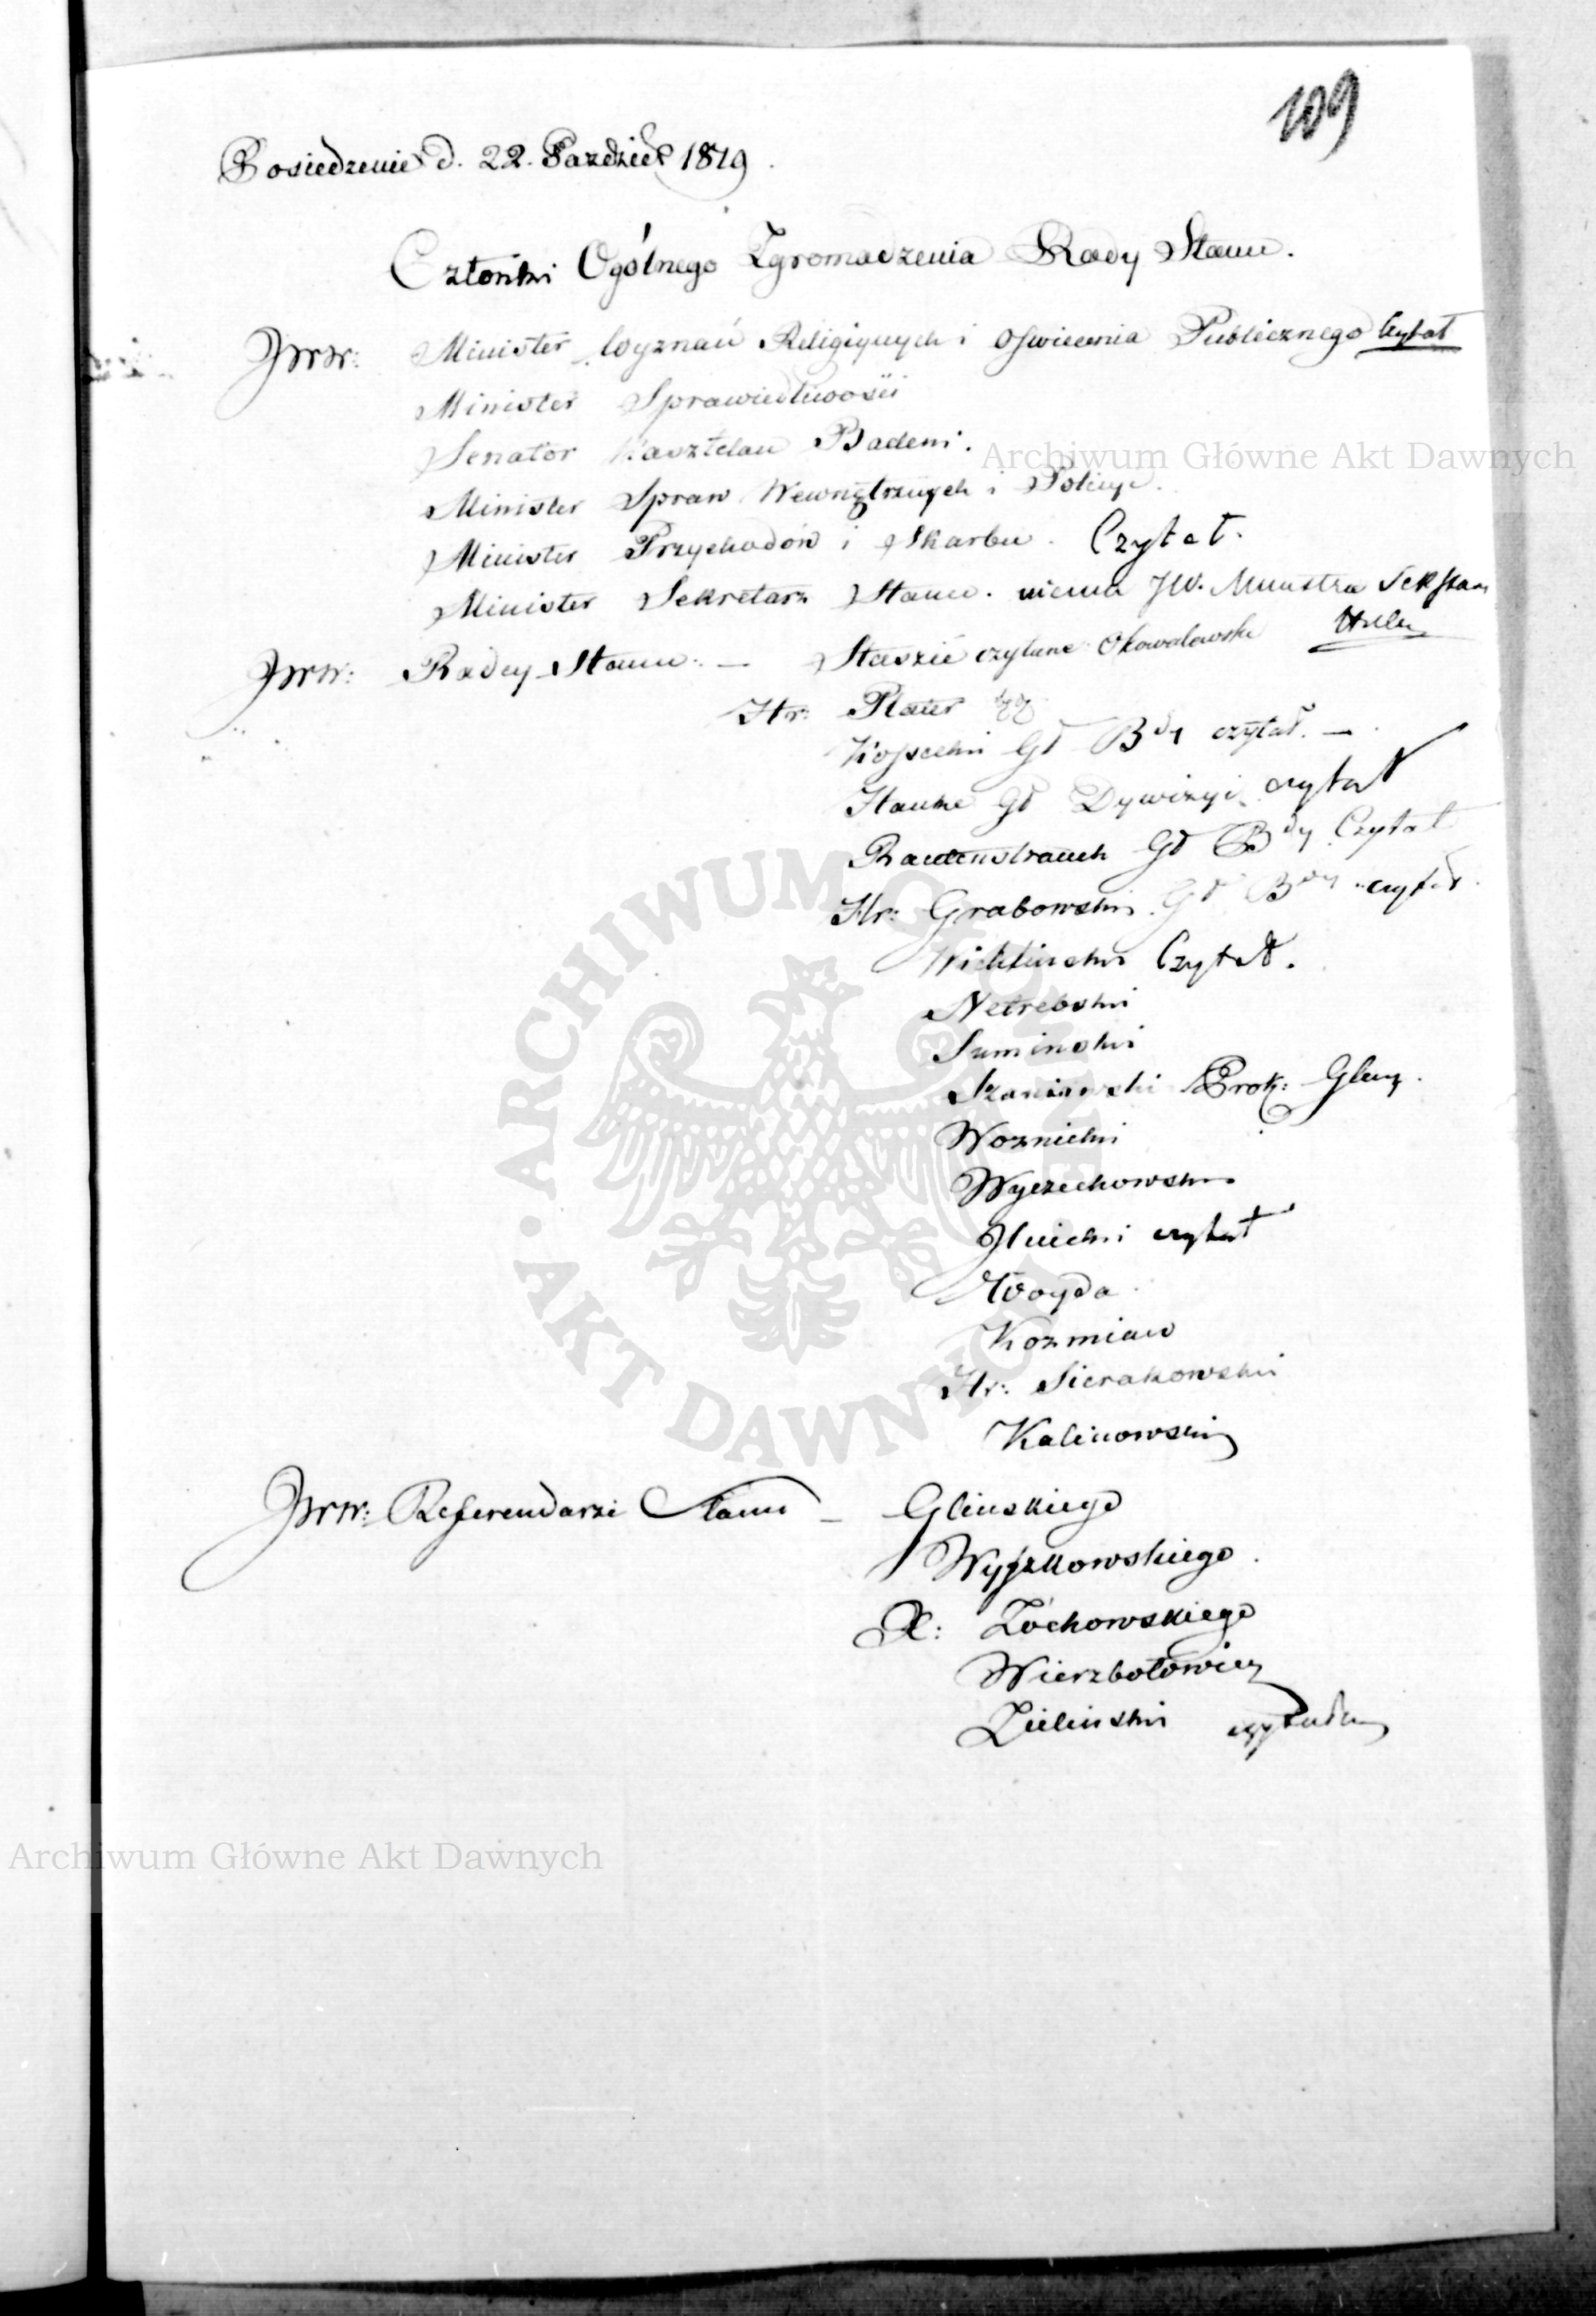 109
Posiedzenie d. 22. Paździer 1819.
Członki Ogólnego Zgromadzenia Rady Stanu.
JWW: Minister Wyznań Religijnych i Oświecenia Publicznego Czytał
Minister Sprawiedliwości
Senator Kasztelan Badeni.
Archiwum Główne Akt Dawnych
Minister Spraw Wewnętrznych i Policyi.
Minister Przychodów i Skarbu. Czytał.
Minister Sekretarz Stanu. niema JW. Ministra Sek Stanu
JWW: Radcy Stanu: — Staszic czytane
Hr: Plater
Kossecki Gł Bdy czytał. —
Hauke Gł Dywizyi czytał
Rautenstrauch Gł Bdy Czytał
Hr: Grabowski Gł Bdy czytał.
Wichliński Czytał.
Netrebski
Sumiński
Szaniawski Prok: Glny.
Woznicki
Wyczechowski
Hnicki czytał
Woyda
Kozmian
Hr: Sierakowski
Kalinowski
JWW: Referendarze Stanu — Glinskiego
Wyszkowskiego.
X: Zóchowskiego
Wierzbołowicz
Zieliński czytałem
ARCHIWUM GŁÓWNE • AKT DAWNYCH •
Archiwum Główne Akt Dawnych